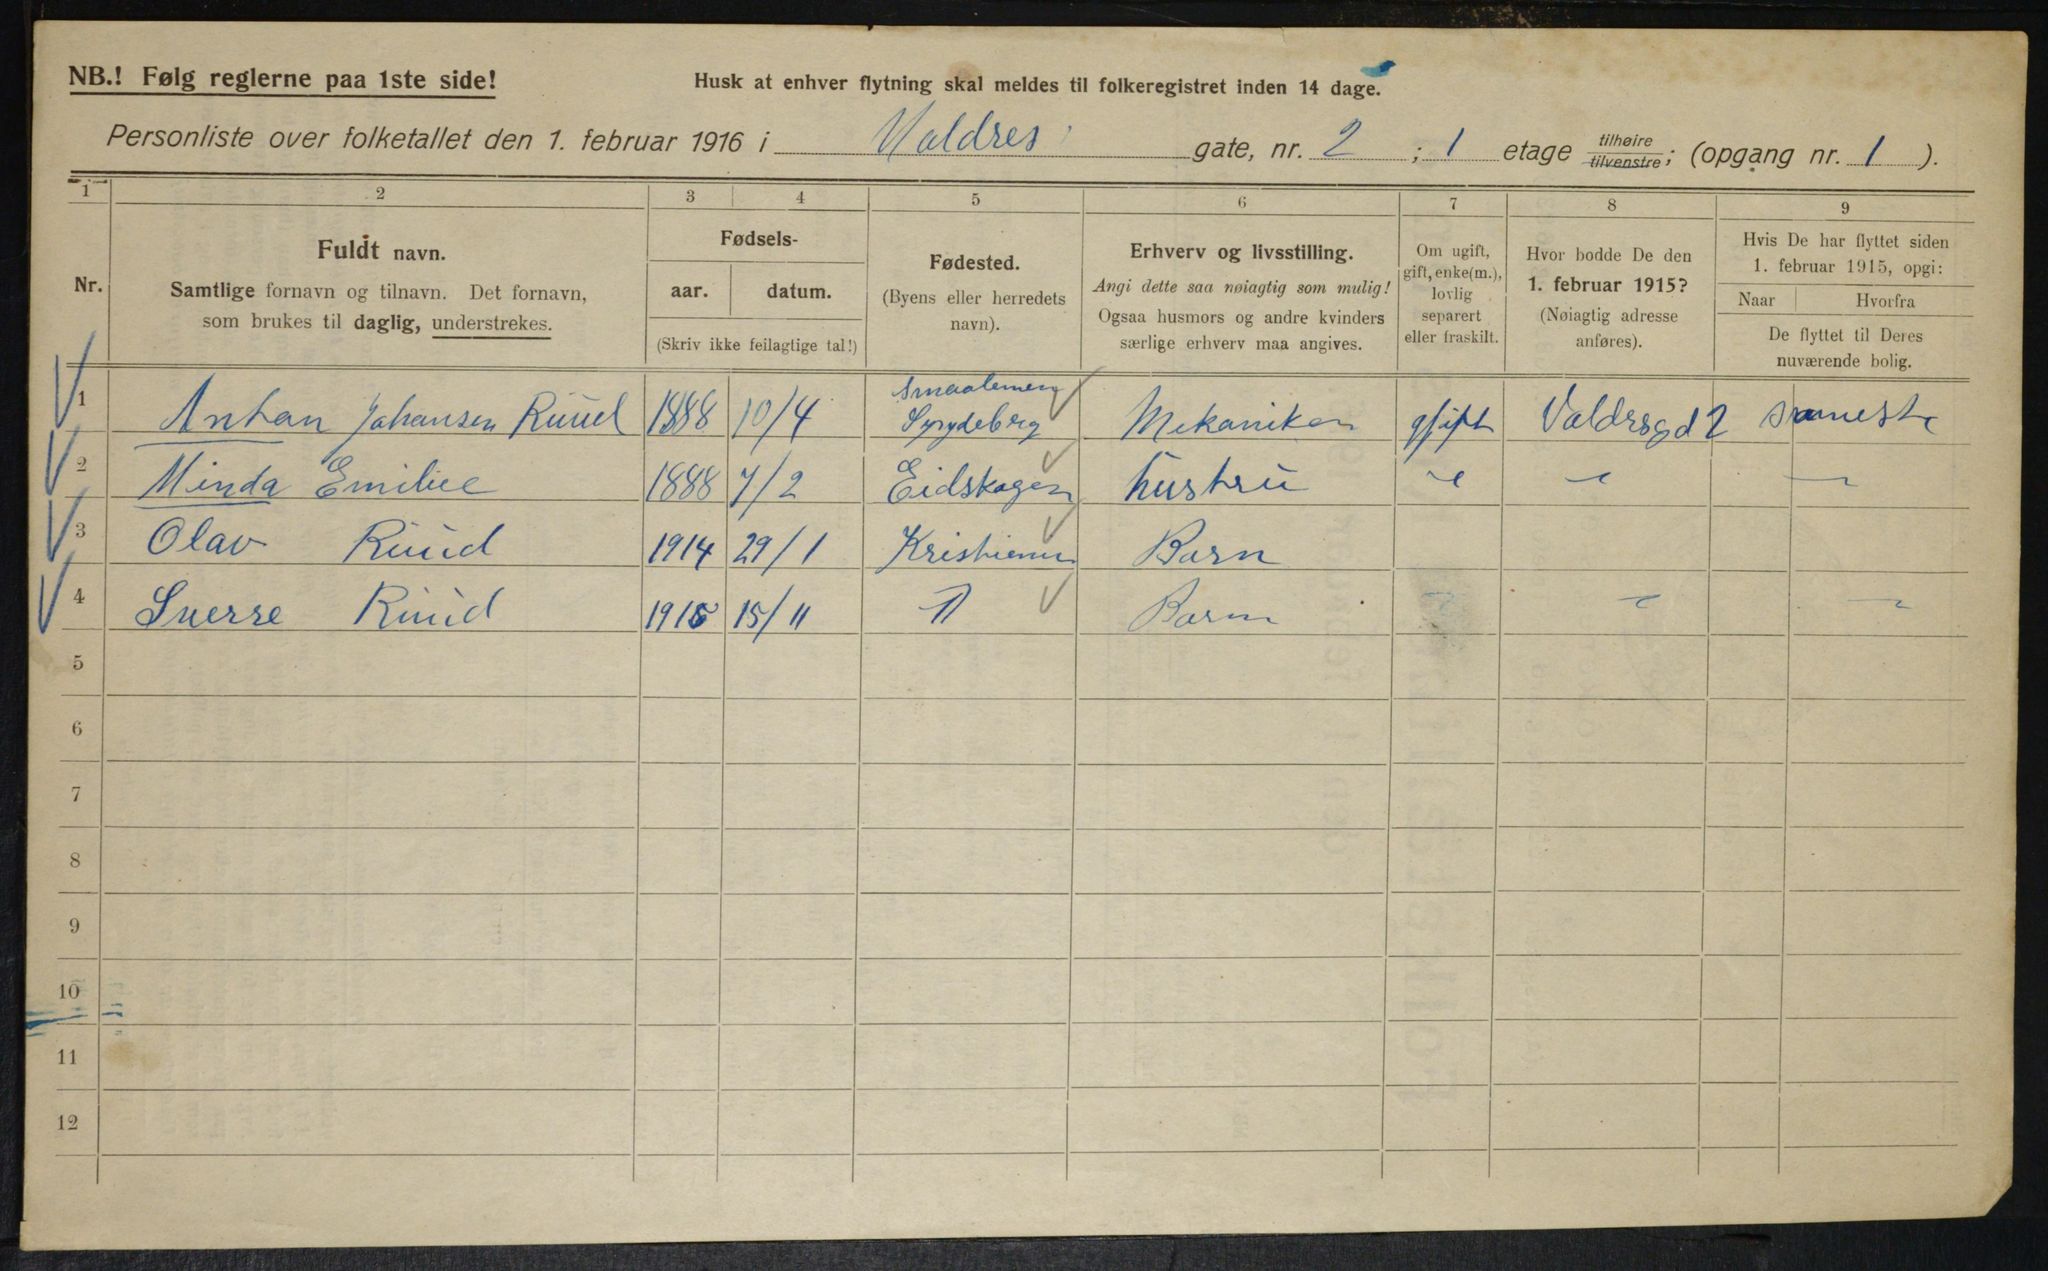 NB.! Følg reglerne paa 1ste side!
Husk at enhver flytning skal meldes til folkeregistret inden 14 dage.
Personliste over folketallet den 1. februar 1916 i Valdres gate, nr. 2 ; 1 etage tilhøire tilvenstre ; (opgang nr. 1 ).
1 2 3 4 5 6 7 8 9
Nr.
Fuldt navn.
Samtlige fornavn og tilnavn. Det fornavn,
som brukes til daglig, understrekes.
Fødsels-
aar. datum.
(Skriv ikke feilagtige tal!)
Fødested.
(Byens eller herredets
navn).
Erhverv og livsstilling.
Angi dette saa nøiagtig som mulig!
Ogsaa husmors og andre kvinders
særlige erhverv maa angives.
Om ugift,
gift, enke(m.),
lovlig
separert
eller fraskilt.
Hvor bodde De den
1. februar 1915?
(Nøiagtig adresse
anføres).
Hvis De har flyttet siden
1. februar 1915, opgi:
Naar Hvorfra
De flyttet til Deres
nuværende bolig.
Smaalenene
1 Anton Johansen Ruud 1888 10/4 Mekaniker gift Valdresgd 2 sammested
2 Minda Emilie 1888 7/2 Eidskogen hustru " " "
3 Olav Ruud 1914 29/1 Kristiania Barn
4 Sverre Ruud 1915 15/11 " Barn " "
5
6
7
8
9
10
11
12